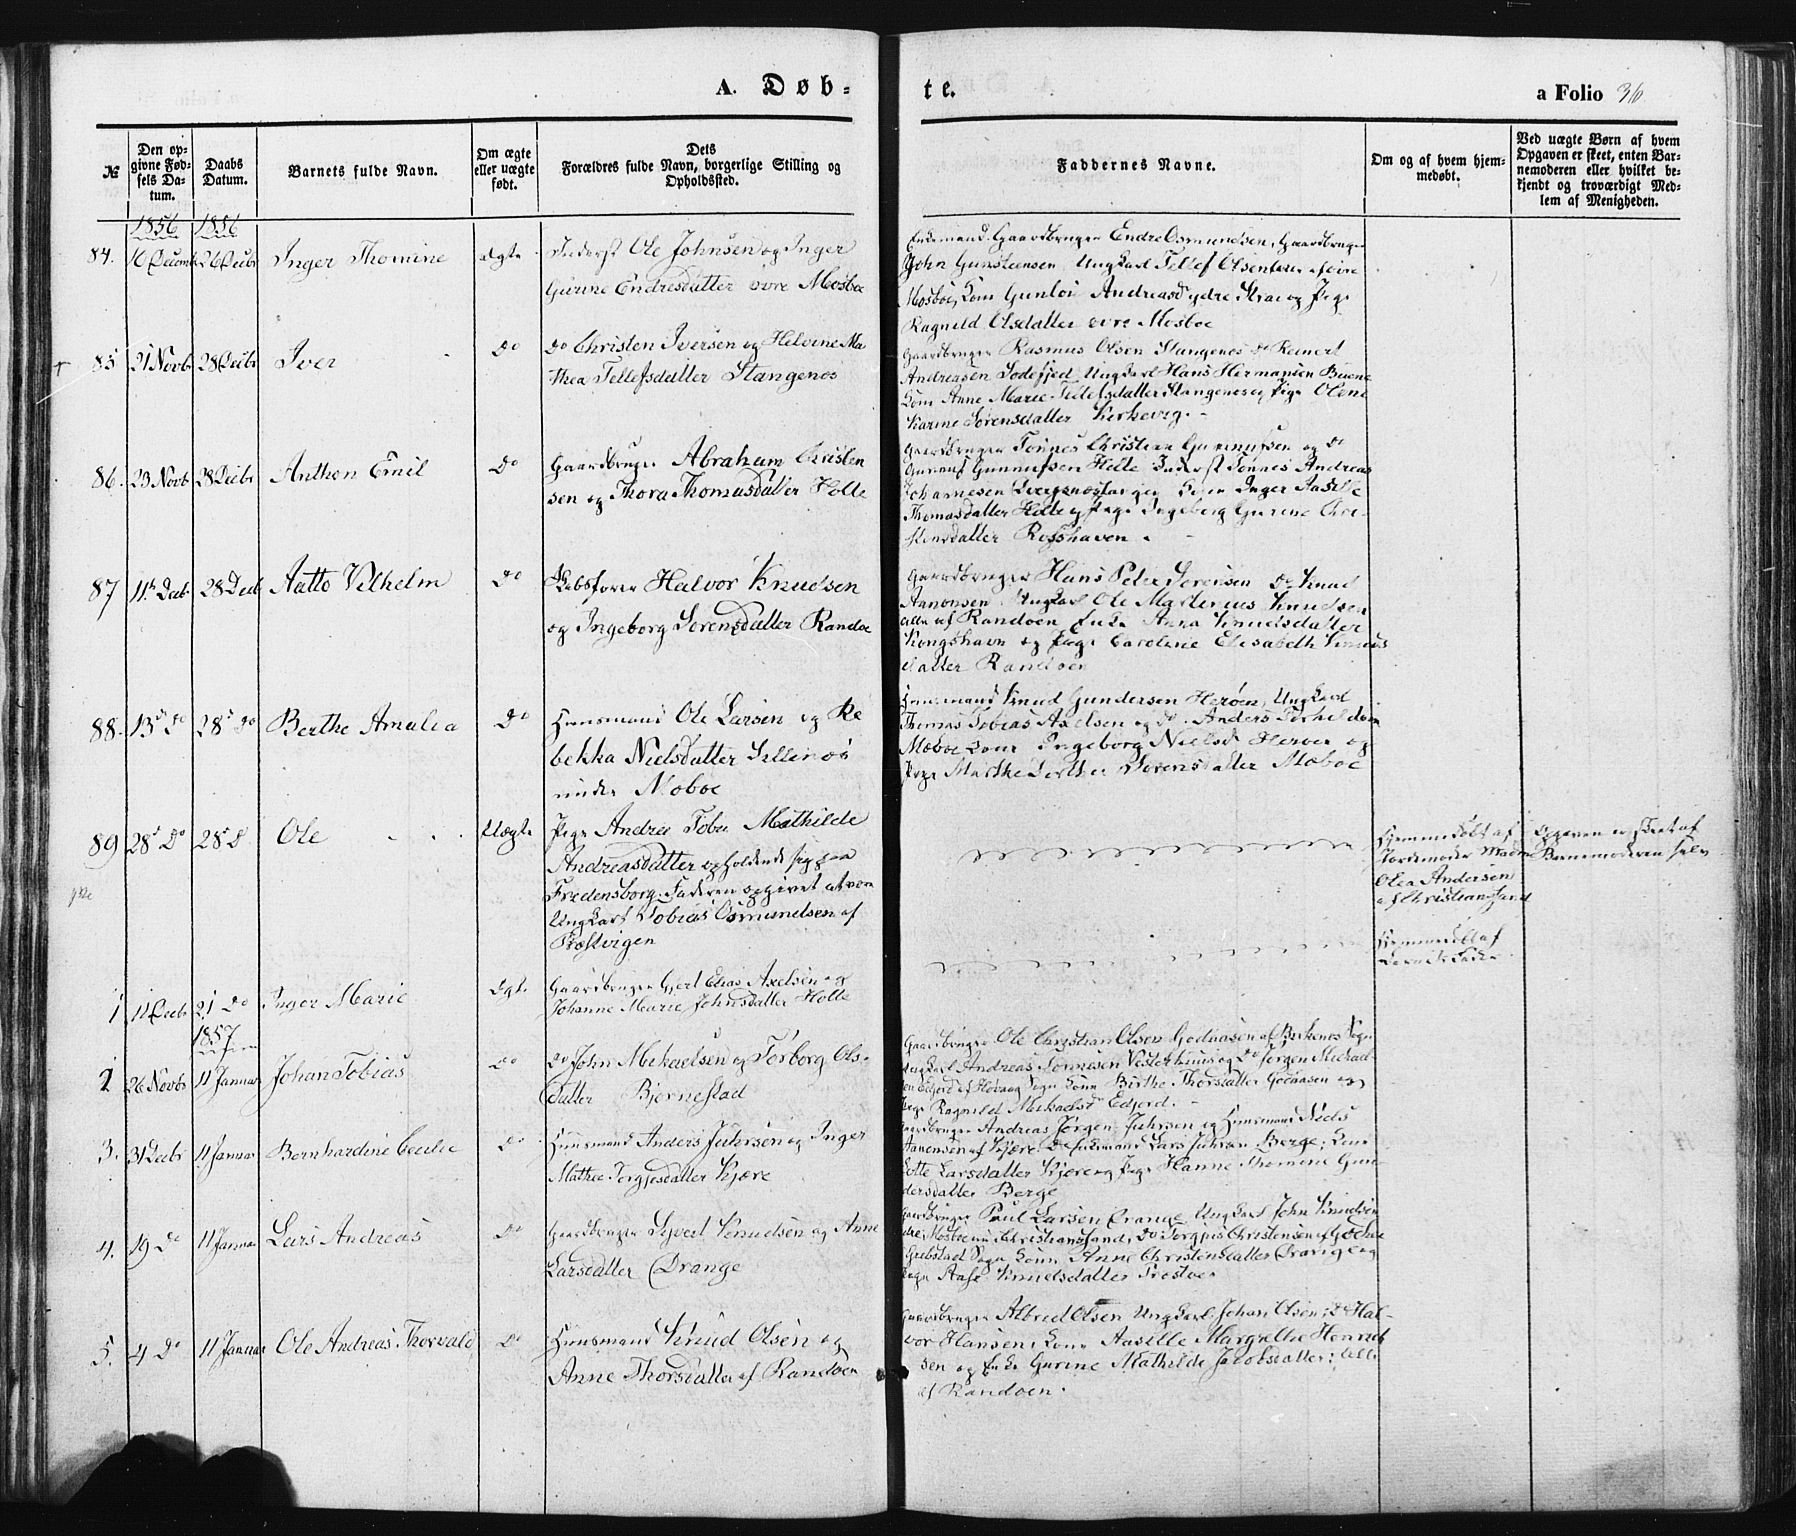 A. Døb-
te.
a Folio 36
№
Den op-
givne Fød-
sels Da-
tum.
Daabs
Datum.
Barnets fulde Navn.
Om ægte
eller uægte
født.
Dets
Forældres fulde Navn, borgerlige Stilling og
Opholdssted.
Faddernes Navne.
Om og af hvem hjem-
medøbt.
Ved uægte Børn af hvem
Opgaven er skeet, enten Bar-
nemoderen eller hvilket be-
kjendt og troværdigt Med-
lem af Menigheden.
1856 1856
84. 16 Decemb 26 Decbr Inger Thomine Ægte Inderst Ole Johnsen og Inger
Gurine Endresdatter øvre Mosbøe
Gaardbruger Endre Osmundsen, Gaardbruger
John Gunsteensen Ungkarl Tellef Olsen
Mosbøe, Kone Gunloi Andreasd ydre Strae og Pige
Ragnild Olsdatter øvre Mosbøe
85 21 Novb 28 Decbr Iver Do Do Christen Iversen og Helvine Ma
thea Tellefsdatter Stangenes
Gaardbruger Rasmus Olsen Stangenes Do Reinert
Andreasen Sodefjed, Ungkarl Hans Hermansen Buene
Kone Anne Marie Tellefsdatter Stangenes og Pige Olene
Karine Sørensdatter Kirkevig.
86. 23 Novb 28 Decbr Anthon Emil Do Gaardbruger Abraham Christen
sen og Thora Thomasdatter Holte
Gaardbruger Tønnes Christian Gunnufsen og Do
Gunnuf Gunnufsen Holte Inderst Tønnes Andreas
Johannesen Kone Inger Aasille
Thomasdatter Holte og Pige Ingeborg Gurine Chri-
stensdatter Rosshaven.
87 11te Decb 28 Decb Aatto Vilhelm Do Skibsfører Halvor Knudsen
og Ingeborg Sørensdatter Randøe
Gaardbruger Hans Peter Sørensen Do Knud
Aanonsen Ungkarl Ole Martinius Knudsen
alle af Randøen Enke Anna Knudsdatter
Kongshavn og Pige Caroline Elisabeth Knuds
datter Randøen
88. 13d Do 28d Do Berthe Amalia Do Huusmand Ole Larsen og Re
bekka Nielsdatter
under Moboe
Huusmand Knud Gundersen Herøen, Ungkarl
Thomas Tobias Axelsen og Do Anders Torkildsen
Moboe Kone Ingeborg Nielsd Herøen og
Pige Marthe Sørensdatter Moboe
89 28d Do 28d D. Ole Uægte Pige Andrea Tobea Mathilde
Andreasdatter opholdende sig paa
Fredensborg. Faderen opgivet at være
Ungkarl Tobias Osmundsen af
Præstvigen
Hjemmedøbt af
Jordemoder Madm
Olea Andersen
af Christiansand
Opgaven er skeet af
Barnemoderen selv
1 11 Decbr 21 Do Inger Marie Ægte Gaardbruger Gjert Elias Axelsen og
Johanne Marie Johnsdatter Holte
Hjemmedøbt af
Barnets Fader
1857
2 26 Novbr 11 Januar Johan Tobias Do Do John Mikaelsen og Torborg Ols-
datter Bjørnestad
Gaardbruger Ole Christian Olsen Godaasen af Birkenes Sogn
Ungkarl Andreas Tønnesen Vesterhuus og Do Jørgen Mikael-
sen Edjord af Høvaag Sogn Kone Birthe Thorsdatter Godaasen og
Pige Ragnild Mikaelsd Edjord.
3. 31 Decbr 11 Januar Bernhardine Cecilie Do Huusmand Anders Juhrsen og Inger
Mathea Tergjesdatter Kjære
Gaardbruger Andreas Jørgen Juhrsen og Huusmand Niels
Aanensen af Kjære. Do Lars Juhrsen Berge; Kone
Lotte Larsdatter Kjære og Pige Hanne Thomine Gun-
dersdatter Berge
4. 19 Do 11 Januar Lars Andreas Do Gaardbruger Syvert Knudsen og Anne
Larsdatter Drange
Gaardbruger Paul Larsen Drange Ungkarl John Knudsen
Mosbøe Christiansand, Do Torgjus Christensen af
Sogn Kone Anne Christensdatter Drange og
Pige Aase Knudsdatter
5. 4 Do 11 Januar Ole Andreas Thorvald Do Huusmand Knud Olsen og
Anne Thorsdatter af Randøen
Gaardbruger Albred Olsen Ungkarl Johan Olsen; Do Hal-
vor Hansen; Kone Aasille Margrethe Henrik
sen og Enke Gurine Mathilde Jacobsdatter; alle
af Randøen.